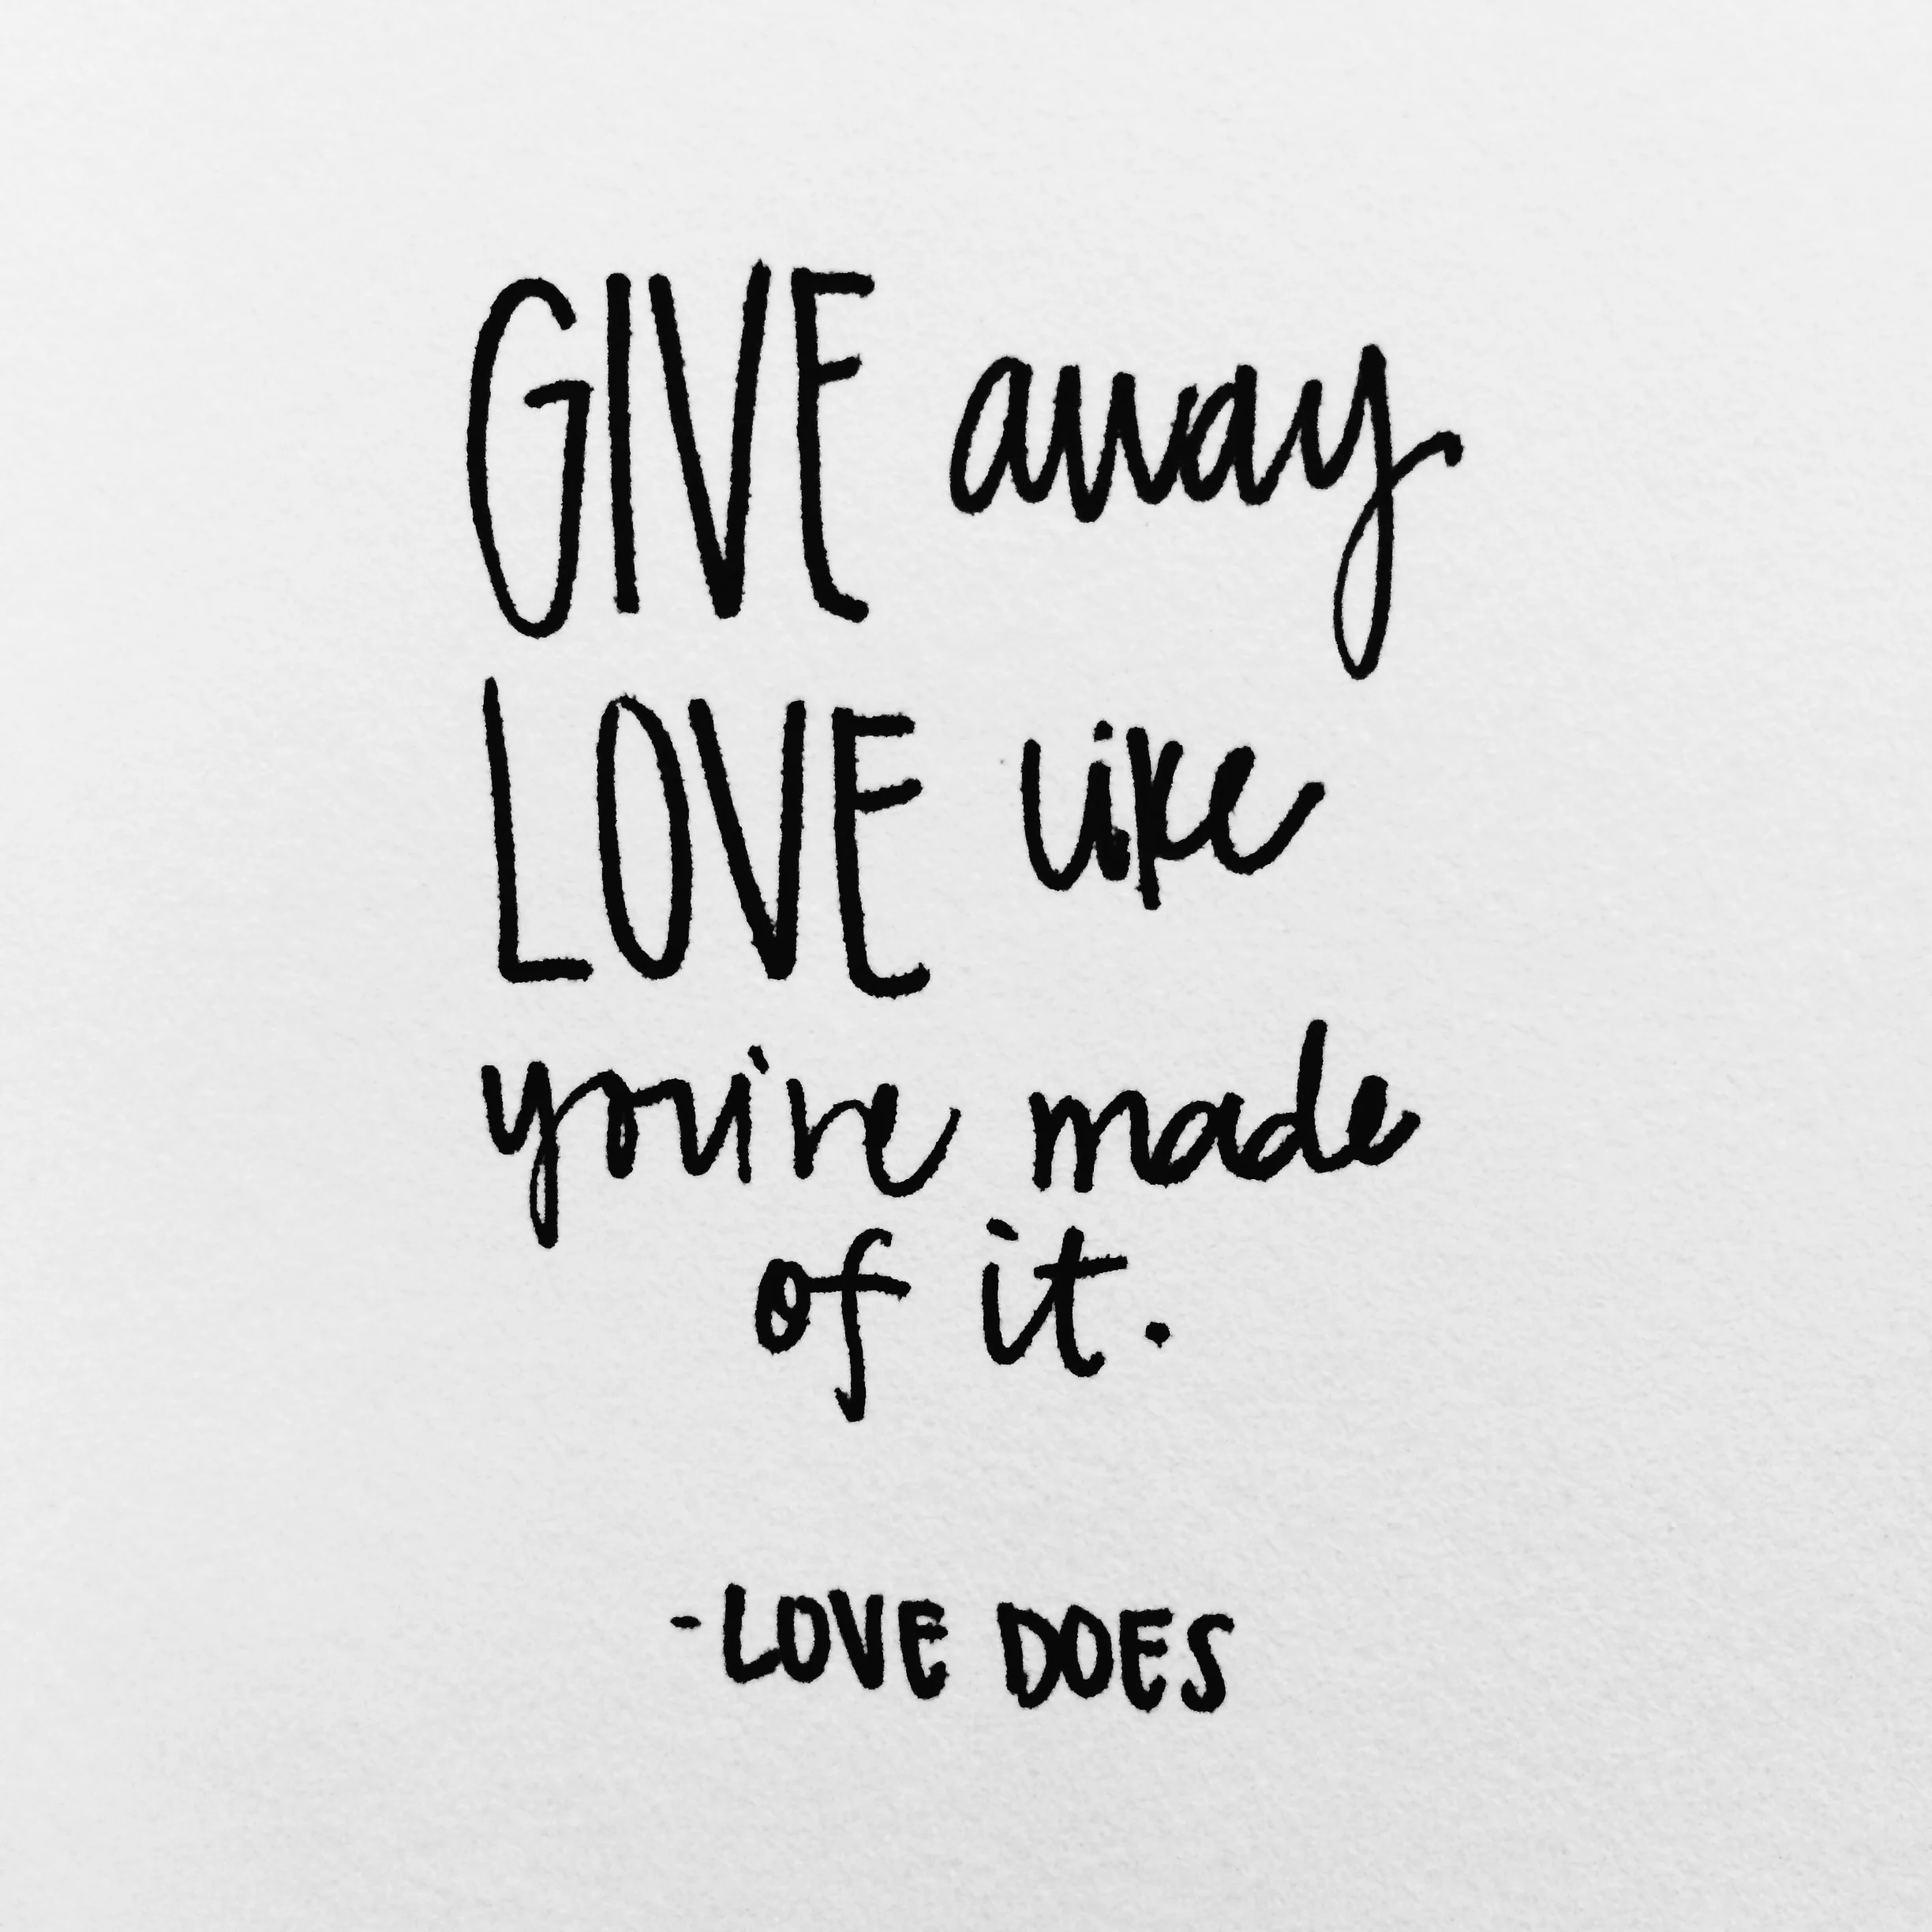 GIVE away
LOVE like
you're made
of it.
-LOVE DOES